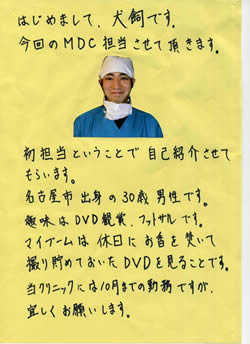 はじめまして、犬飼です。
今回のMDC担当させて頂きます。
初担当ということで自己紹介させて
もらいます。
名古屋市出身の30歳男性です。
趣味はDVD観賞、フットサルです。
マイブームは休日にお香を焚いて
撮り貯めておいたDVDを見ることです。
当クリニックには10月までの勤務ですが、
宜しくお願いします。